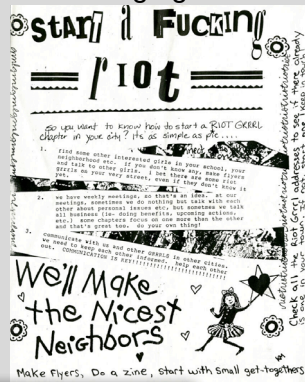 START A FUCKING
RIOT
So you want to know how to start a RIOT GRRRL
chapter in your city? Its as simple as pie....
1. find some other interested girls in your school, your
neighborhood etc. if you don't know any, make flyers
and talk to other girls. I bet there are some riot
grrrls on your very street, even if they don't know it
yet.
2. we have weekly meetings, so that's an idea. at
meetings, sometimes we do nothing but talk with each
other about personal issues etc, but sometimes we talk
all business (ie- doing benefits, upcoming actions,
etc.) some chapters focus on one more than the other
and that's great too. do your own thing!
3. communicate with us and other GRRRLS in other cities.
we need to keep each other informed. help each other
out. COMMUNICATION IS EVERYTHING!!!!!!!!!!!!!!
We'll Make
the Nicest
Neighbors
Make flyers, Do a zine, start with small get-togethers
Check all the Riot Grrrl addresses to see if there already
is one in your town